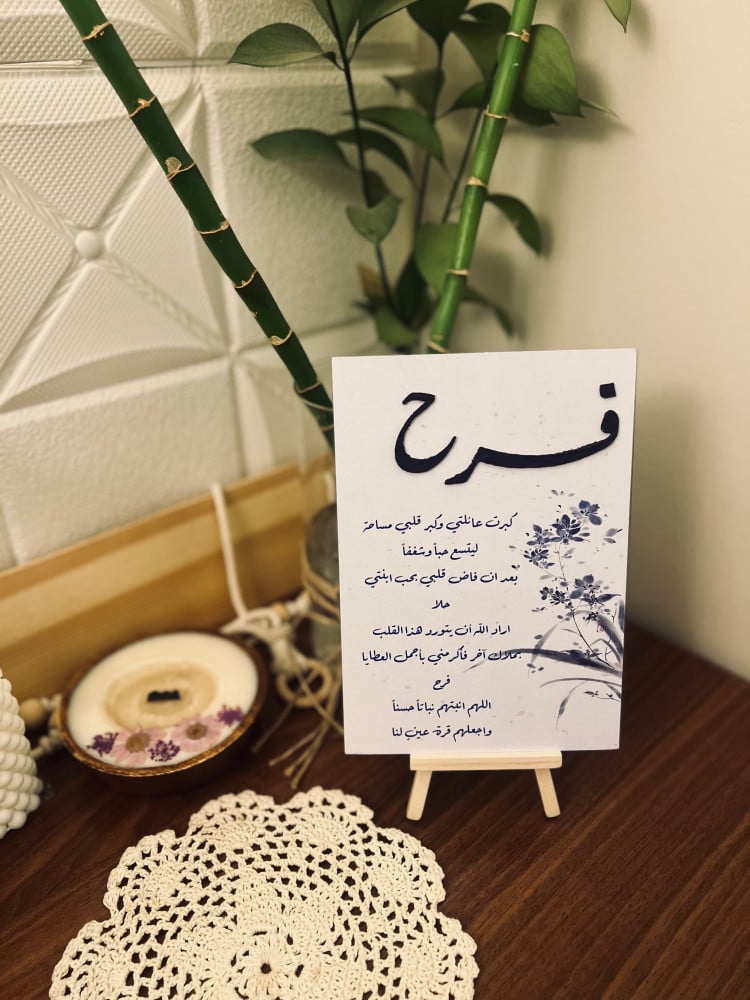 فرح
كبرت عائلتي وكبر قلبي مساحة
ليتسع حباً وشغفاً
بعد ان فاض قلبي بحب ابنتي
حلا
اراد الله أن يتورد هذا القلب
بملاك آخر فأكرمني بأجمل العطايا
فرح
اللهم انبتهم نباتاً حسناً
واجعلهم قرة عين لنا